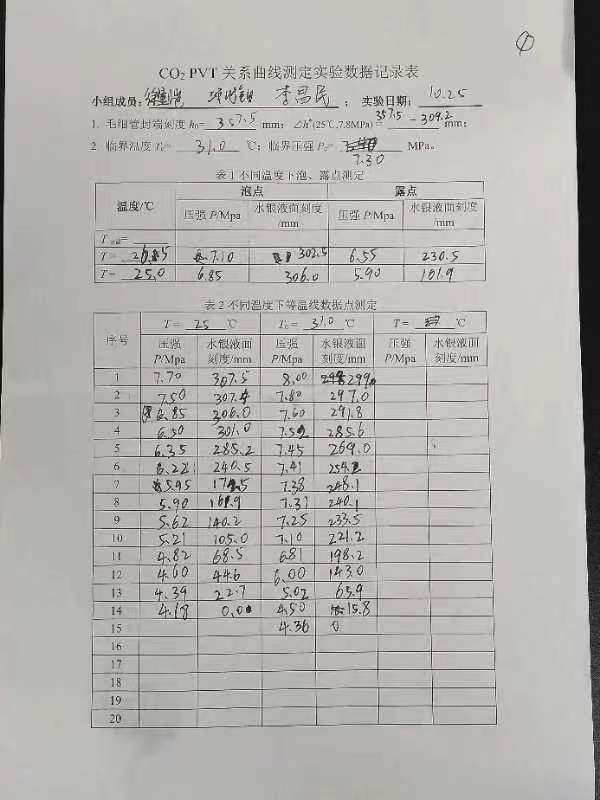 ①
CO₂ PVT 关系曲线测定实验数据记录表
小组成员: 李昌民 ; 实验日期: 10.25
1. 毛细管封端刻度 h₀= 357.5 mm; Δh*(25℃,7.8MPa) = 357.5 - 309.2 mm;
2. 临界温度 Tc= 31.0 ℃; 临界压强 Pc= 7.30 MPa。
表 1 不同温度下泡、露点测定
温度/℃ 泡点 露点
压强 P/Mpa 水银液面刻度/mm 压强 P/Mpa 水银液面刻度/mm
T= 7.10 302.5 6.55 230.5
T= 25.0 6.85 306.0 5.90 161.9
表 2 不同温度下等温线数据点测定
序号 T= 25 ℃ Tc= 31.0 ℃ T= ℃
压强 P/Mpa 水银液面刻度/mm 压强 P/Mpa 水银液面刻度/mm 压强 P/Mpa 水银液面刻度/mm
1 7.70 307.5 8.00 299
2 7.50 307.4 7.80 297.0
3 6.85 306.0 7.60 291.8
4 6.50 301.0 7.52 285.6
5 6.35 285.2 7.45 269.0
6 6.22 240.5 7.41 254.2
7 5.95 7.38 248.1
8 5.90 161.9 7.31 240.1
9 5.62 140.2 7.25 233.5
10 5.21 105.0 7.10 221.2
11 4.82 68.5 6.81 198.2
12 4.60 44.6 6.00 143.0
13 4.39 22.7 5.02 65.9
14 4.18 0.0 4.50 15.8
15 4.36 0
16
17
18
19
20